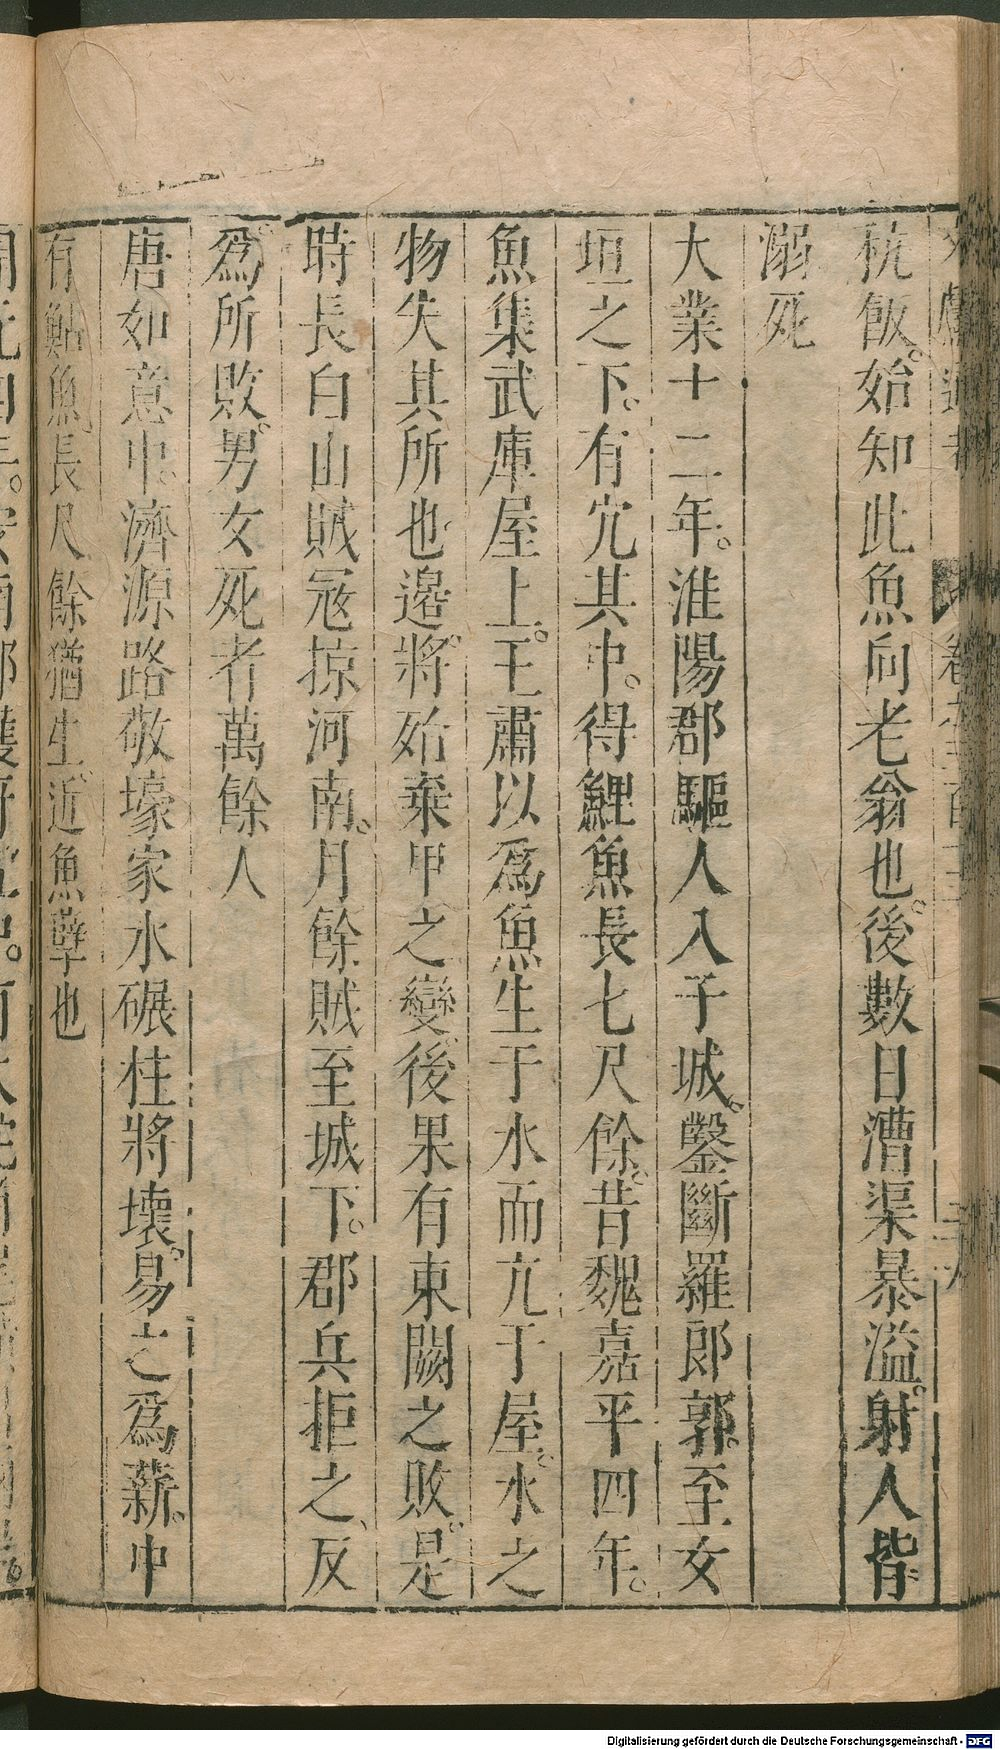 秔飯。始知此魚向老翁也。後數日漕渠暴溢。射人皆
溺死
大業十二年。淮陽郡驅人入子城。鑿斷羅郎郭。至女
垣之下。有穴其中。得鯉魚長七尺餘。昔魏嘉平四年。
魚集武庫屋上。王肅以爲魚生于水而亢于屋。水之
物失其所也。邊將殆棄甲之變。後果有東關之敗。是
時長白山賊冦掠河南。月餘賊至城下。郡兵拒之、反
爲所敗。男女死者萬餘人
唐如意中。濟源路敬壕家水碾柱將壞。易之爲薪。中
有鮎魚。長尺餘猶生。近魚孽也
Digitalisierung gefördert durch die Deutsche Forschungsgemeinschaft - DFG